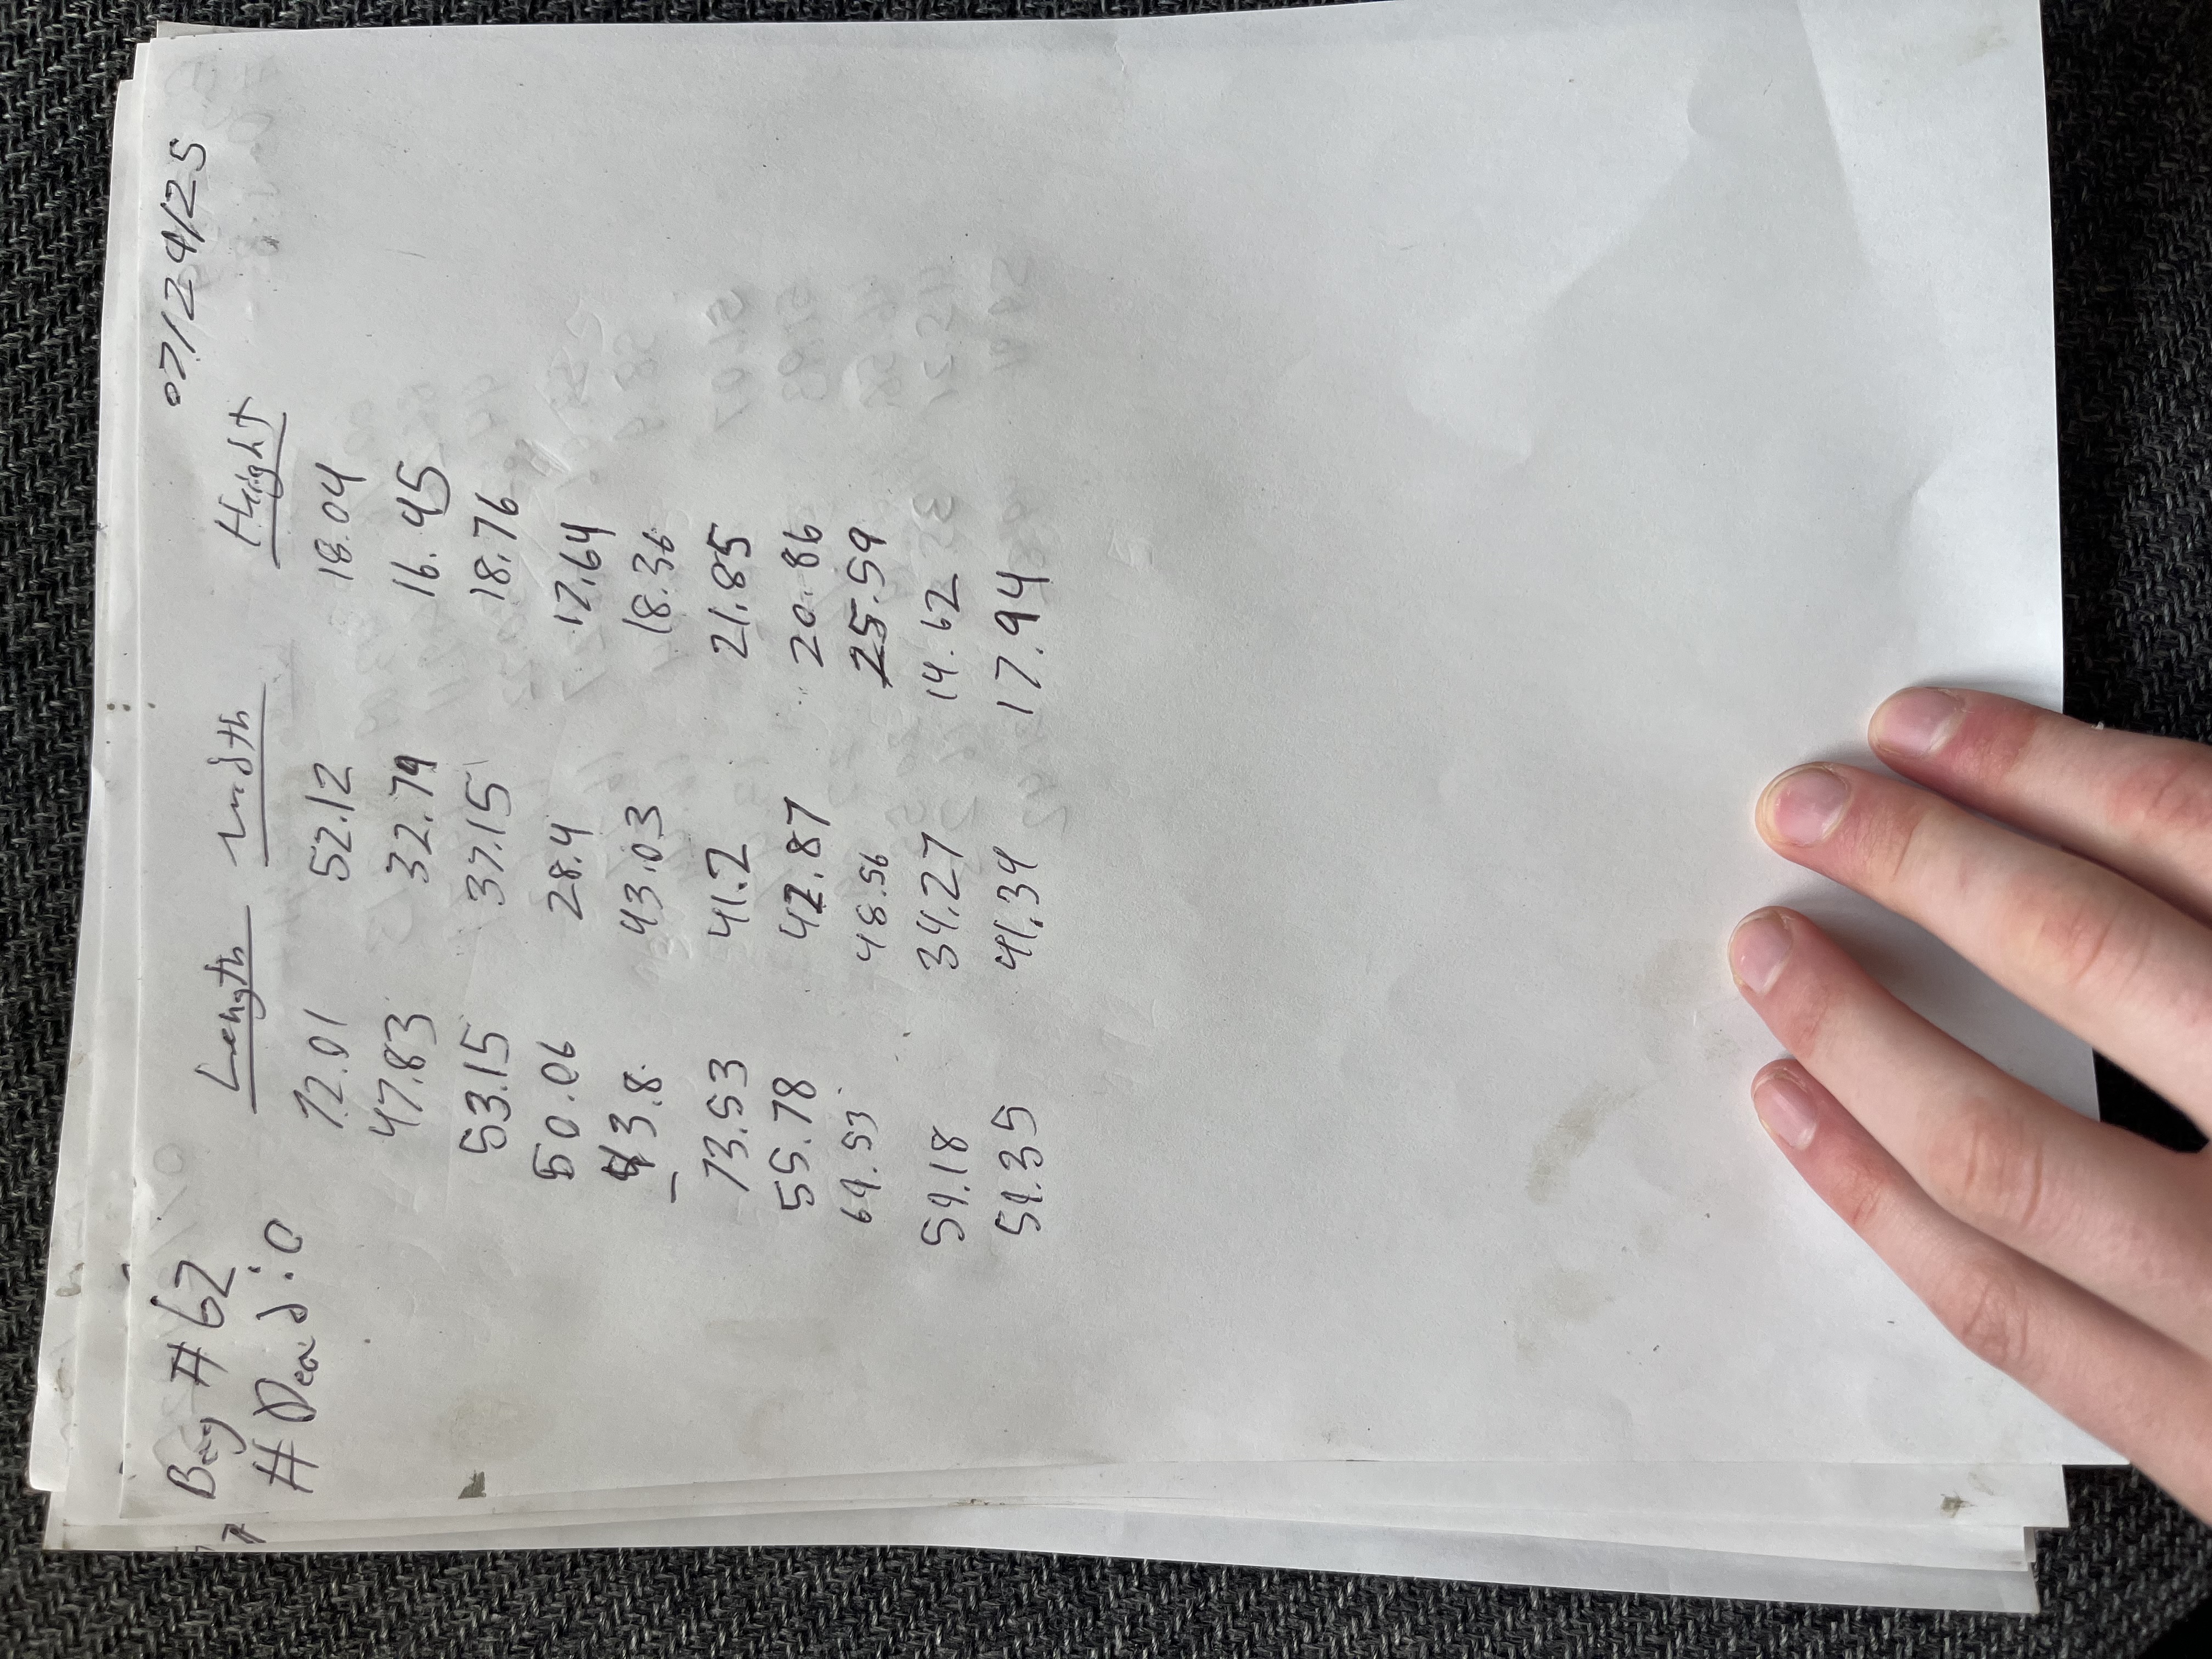 07/24/25
Bag #62
#Dead:0
Length Width Height
72.01 52.12 18.04
47.83 32.79 16.45
53.15 37.15 18.76
50.06 28.4 17.64
43.8 43.03 18.36
73.53 41.2 21.85
55.78 42.87 20.86
69.53 48.56 25.59
59.18 34.27 14.62
59.35 41.34 17.94